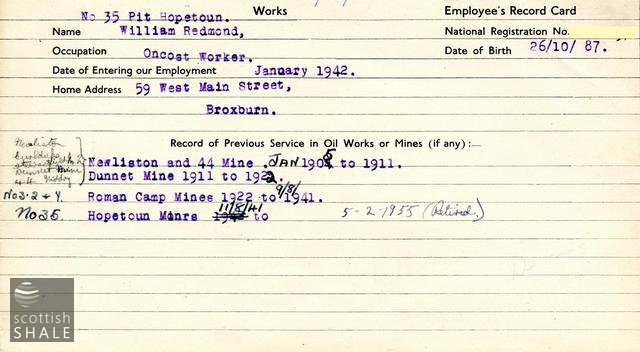 Works Employee's Record Card
No 35 Pit Hopetoun.
Name William Redmond, National Registration No.
Occupation Oncost Worker. Date of Birth 26/10/ 87.
Date of Entering our Employment January 1942.
Home Address 59 West Main Street,
Broxburn.
Record of Previous Service in Oil Works or Mines (if any) :—
Newliston
Newliston and 44 Mine . JAN 1905 to 1911.
Dunnet Mine 1911 to 1922.
9/8/
No 3. 2 + 4. Roman Camp Mines 1922 to 1941.
11/8/41
No 35. Hopetoun Minrs 1942 to 5-2-1955 (Retired.)
scottish
SHALE